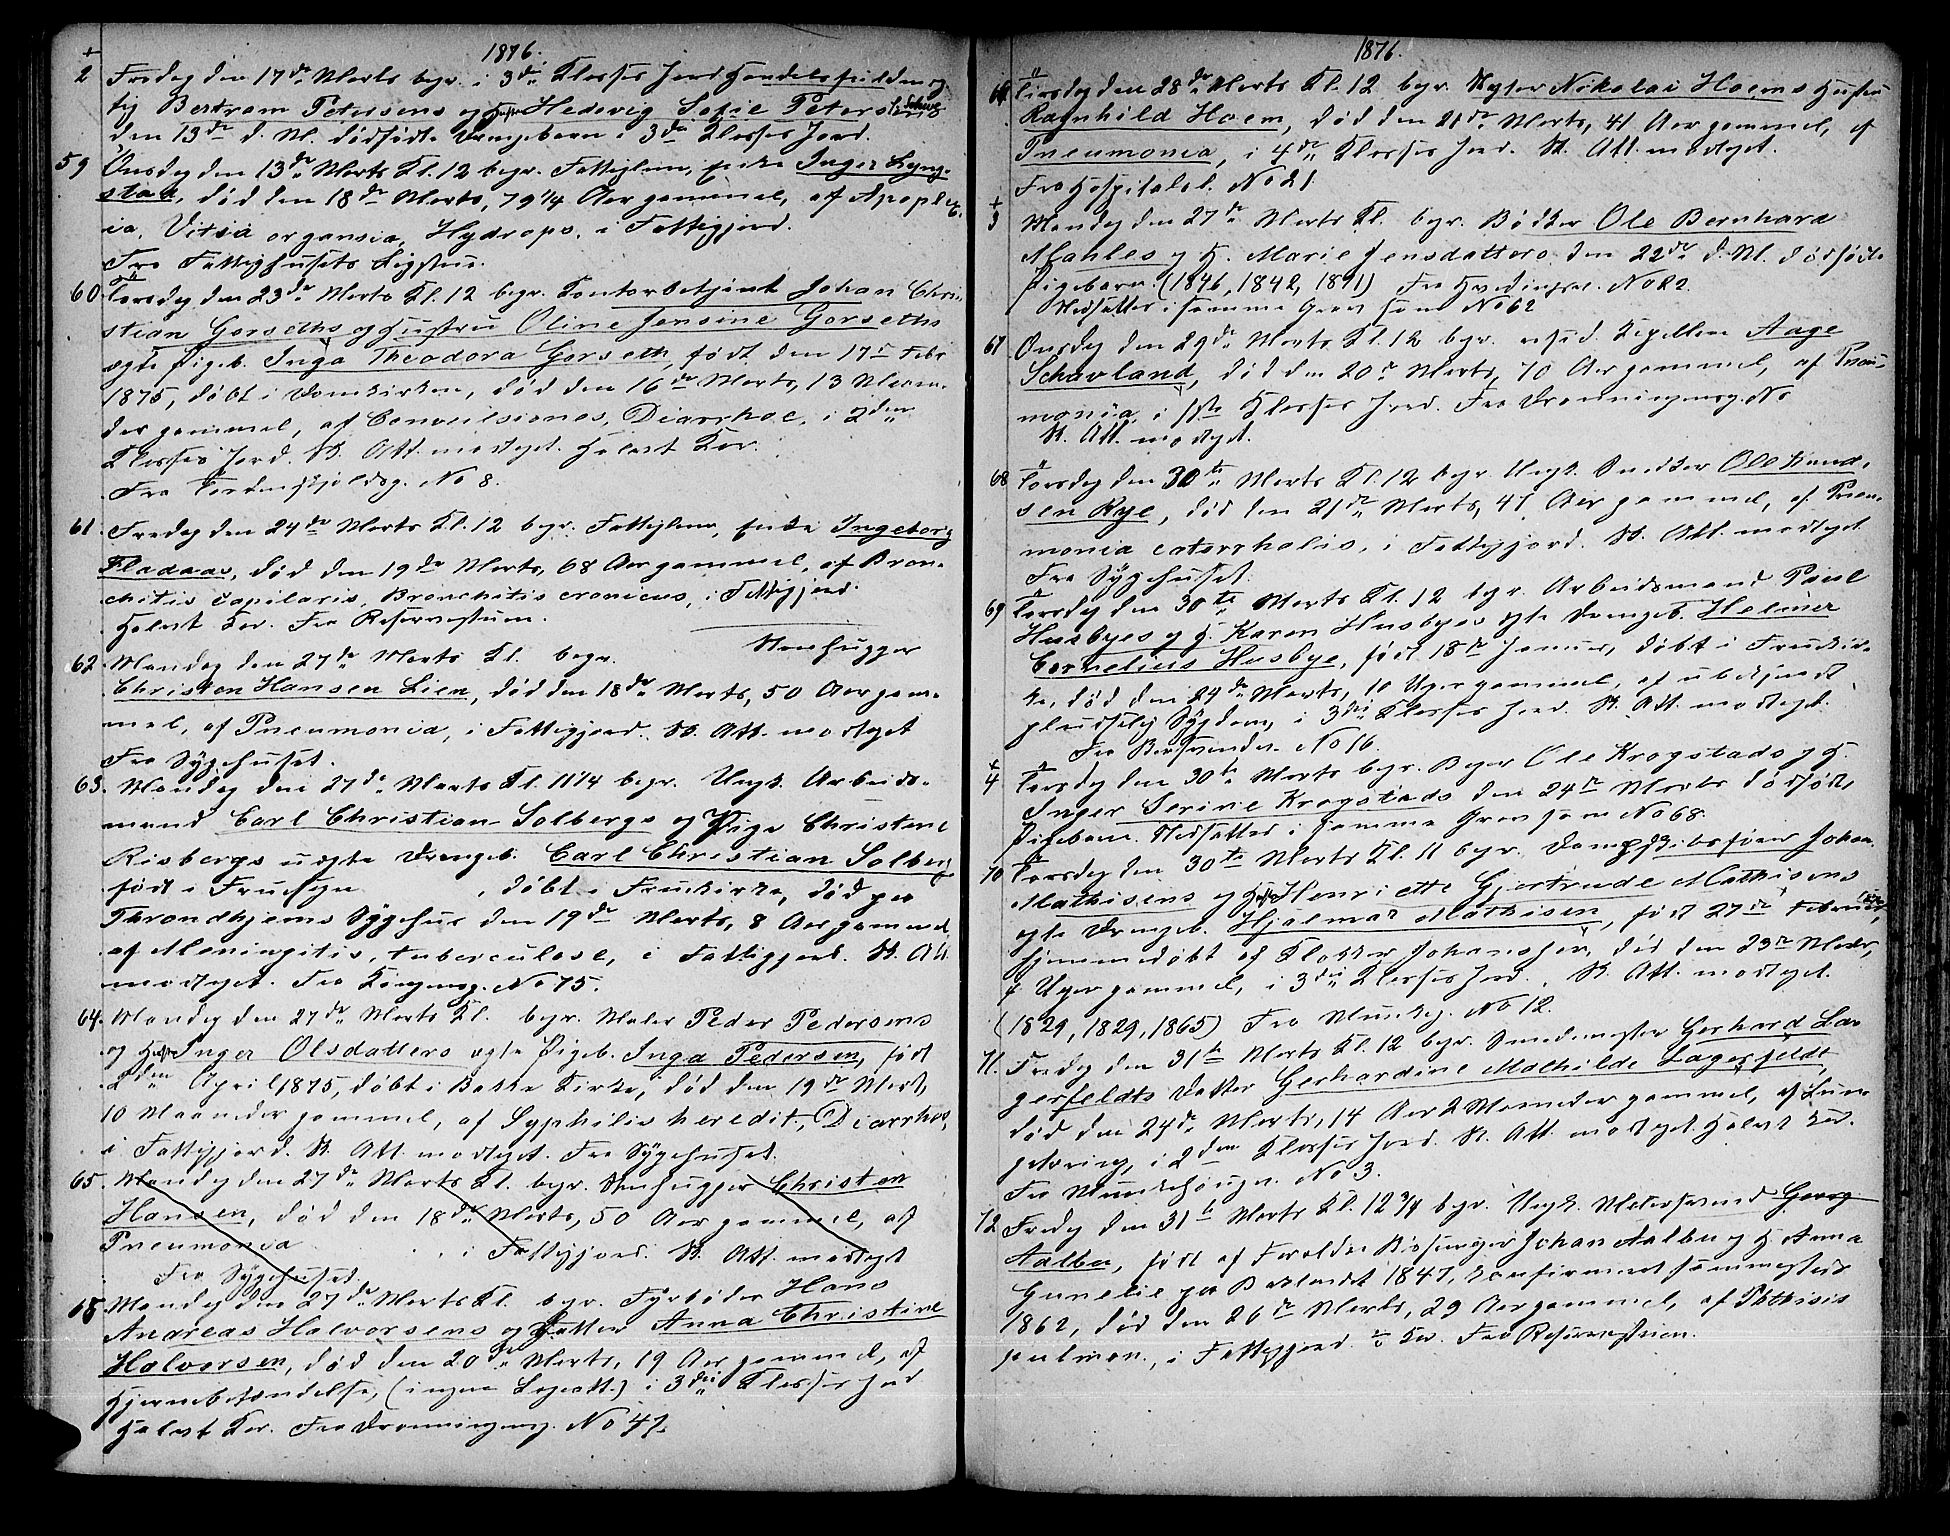 1876.
+
2 Fredag den 17de Marts begr. i 3die Klasses Jord Handelsfuldmæg
tig Bertram Petersens og Hustru Hedevig Sofie Petersens
den 13de d. M. dødfødte Drengebarn i 3die Klasses Jord.
59 Onsdag den 13de Marts Kl. 12 begr. Fattiglem, Enke Inger Lyng-
stad, død den 18de Marts, 79 1/4 Aar gammel, af Apoplex-
ia, Vitia organsia, Hydrops, i Fattigjord.
Fra Fattighusets Ligstue.
60 Torsdag den 23de Marts Kl. 12 begr. Kontorbetjent Johan Chri-
stian Gorseths og Hustru Oline Jensine Gorseths
ægte Pigeb. Inga Theodora Gorseth, født den 17de Febr
1875, døbt i Domkirken, død den 16de Marts, 13 Maane-
der gammel, af Convulsiones, Diarrhoe, i 2den
Klasses Jord. Sk. Att. modtaget. Halvt Kor.
Fra Tordenskjoldsg. No 8.
61. Fredag den 24de Marts Kl. 12 begr. Fattiglem, Enke Ingeborg
Fladaas, død den 19de Marts, 68 Aar gammel, af Bron-
chitis capilaris, Bronchitis cronicus, i Fattigjord.
Halvt Kor. Fra Reservestuen.
62. Mandag den 27de Marts Kl. begr. Stenhugger
Christen Hansen Lien, død den 18de Marts, 50 Aar gam-
mel, af Pneumonia, i Fattigjord. Sk. Att. modtaget
Fra Sygehuset.
63. Mandag den 27de Marts Kl. 11 1/4 begr. Ungk. Arbeids-
mand Carl Christian Solbergs og Pige Christene
Risbergs uægte Drengeb. Carl Christian Solberg
født i Frue Sogn , døbt i Fruekirke, død paa
Throndhjems Sygehus den 19de Marts, 8 Aar gammel,
af Meningitis, tuberculose, i Fattigjord. Sk. Att
modtaget. Fra Kongensg. No 75.
64. Mandag den 27de Marts Kl. begr. Maler Peder Pedersens
og Hustru Inger Olsdatters ægte Pigeb. Inga Pedersen, født
2den April 1875, døbt i Bakke Kirke, død den 19de Marts,
10 Maaneder gammel, af Syphilis heredit., Diarrhoe,
i Fattigjord. Sk. Att. modtaget. Fra Sygehuset.
65. Mandag den 27de Marts Kl. begr. Stenhugger Christen
Hansen, død den 18de Marts, 50 Aar gammel, af
Pneumonia i Fattigjord. Sk. Att. modtaget
Fra Sygehuset.
65. Mandag den 27de Marts Kl. begr. Fyrbøder Hans
Andreas Halvorsens og Datter Anna Christine
Halvorsen, død den 20de Marts, 19 Aar gammel, af
Hjernebetændelse, (ingen Lægeatt.) i 3die Klasses Jord
Halvt Kor. Fra Dronningensg. No 47.
1876.
66 Tirsdag den 28de Marts Kl. 12 begr. Nikolai Hoems Hustru
Ragnhild Hoem, død den 21de Marts, 41 Aar gammel, af
Pneumonia, i 4de Klasses Jord. Sk. Att. modtaget.
Fra Hospitalsl. No 21.
+
3 Mandag den 27de Marts Kl. begr. Bødker Ole Bernhard
Mahles og H. Marie Jensdatters den 22de d. M. dødfødte
Pigebarn. (1846, 1842, 1871) Fra No 22.
Nedsattes i samme Grav som No 62
67 Onsdag den 29de Marts Kl. 12 begr. resid. Kapellan Aage
Schavland, død den 20de Marts, 70 Aar gammel, af Pneu-
monia, i 1ste Klasses Jord. Fra Dronningensg. No
Sk. Att. modtaget.
68 Torsdag den 30te Marts Kl. 12 begr. Ungk. Snedker Ole Knud-
sen Rye, død den 21de Marts, 47 Aar gammel, af Pneu-
monia catarrhalis, i Fattigjord. Sk. Att. modtaget
Fra Sygehuset.
69 Torsdag den 30te Marts Kl. 12 begr. Arbeidsmand Paul
Husbyes og H. Karen Husbyes ægte Drengeb. Helmer
Cornelius Husbye, født 18de Januar, døbt i Fruekir-
ke, død den 24de Marts, 10 Uger gammel, af ubekjendt
pludselig Sygdom, i 3die Klasses Jord. Sk. Att. modtaget.
Fra No 16.
+
4 Torsdag den 30te Marts begr. Bager Ole Krogstads og H.
Inger Serine Krogstads den 24de Marts dødfødte
Pigebarn. Nedsattes i samme Grav som No 68.
70 Torsdag den 30te Marts Kl. 11 begr. Dampskibsfører Johan
Mathisens og Hustru Henriette Gjertrude Mathisens
ægte Drengeb. Hjalmar Mathisen, født 27de Februar,
hjemmedøbt af Klokker Johansen, død den 23de Marts,
4 Uger gammel, i 3die Klasses Jord. Sk. Att. modtaget.
(1829, 1829, 1865) Fra Munkeg. No 12.
71. Fredag den 31te Marts Kl. 12 begr. Smedemester Gerhard La-
gerfeldts Datter Gerhardine Mathilde Lagerfeldt,
død den 24de Marts, 14 Aar 2 Maaneder gammel, af Lun-
getæring, i 2den Klasses Jord. Sk. Att. modtaget. Halvt Kor.
Fra Munkehaugen. No 3.
72 Fredag den 31te Marts Kl. 12 3/4 begr. Ungk. Malersvend Georg
Aalbu, født af Forældre Johan Aalbu og H. Anna
Gunelie paa Baklandet 1847, konfirmeret sammesteds
1862, død den 26de Marts, 29 Aar gammel, af Phthisis
pulmon., i Fattigjord. 1/2 Kor. Fra Reservestuen.